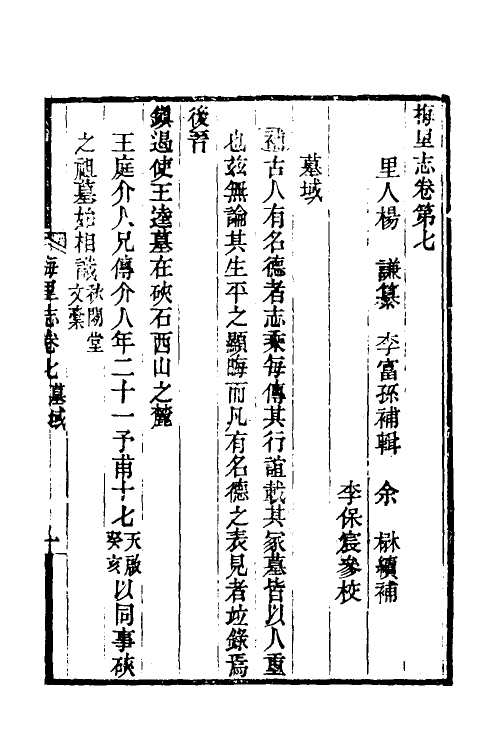 梅里志卷第七
里人楊　謙纂　李富孫補輯　余　楙續補
李保宸參校
墓域
補古人有名德者志乘每傳其行誼載其冢墓皆以人重
也茲無論其生平之顯晦而凡有名德之表見者竝錄焉
後晉
鎭遏使王逵墓在硤石西山之麓
王庭介人兄傳介人年二十一予甫十七天啟癸亥以同事硤
之祖墓始相識秋閒堂文稾
梅里志卷七 墓域
一